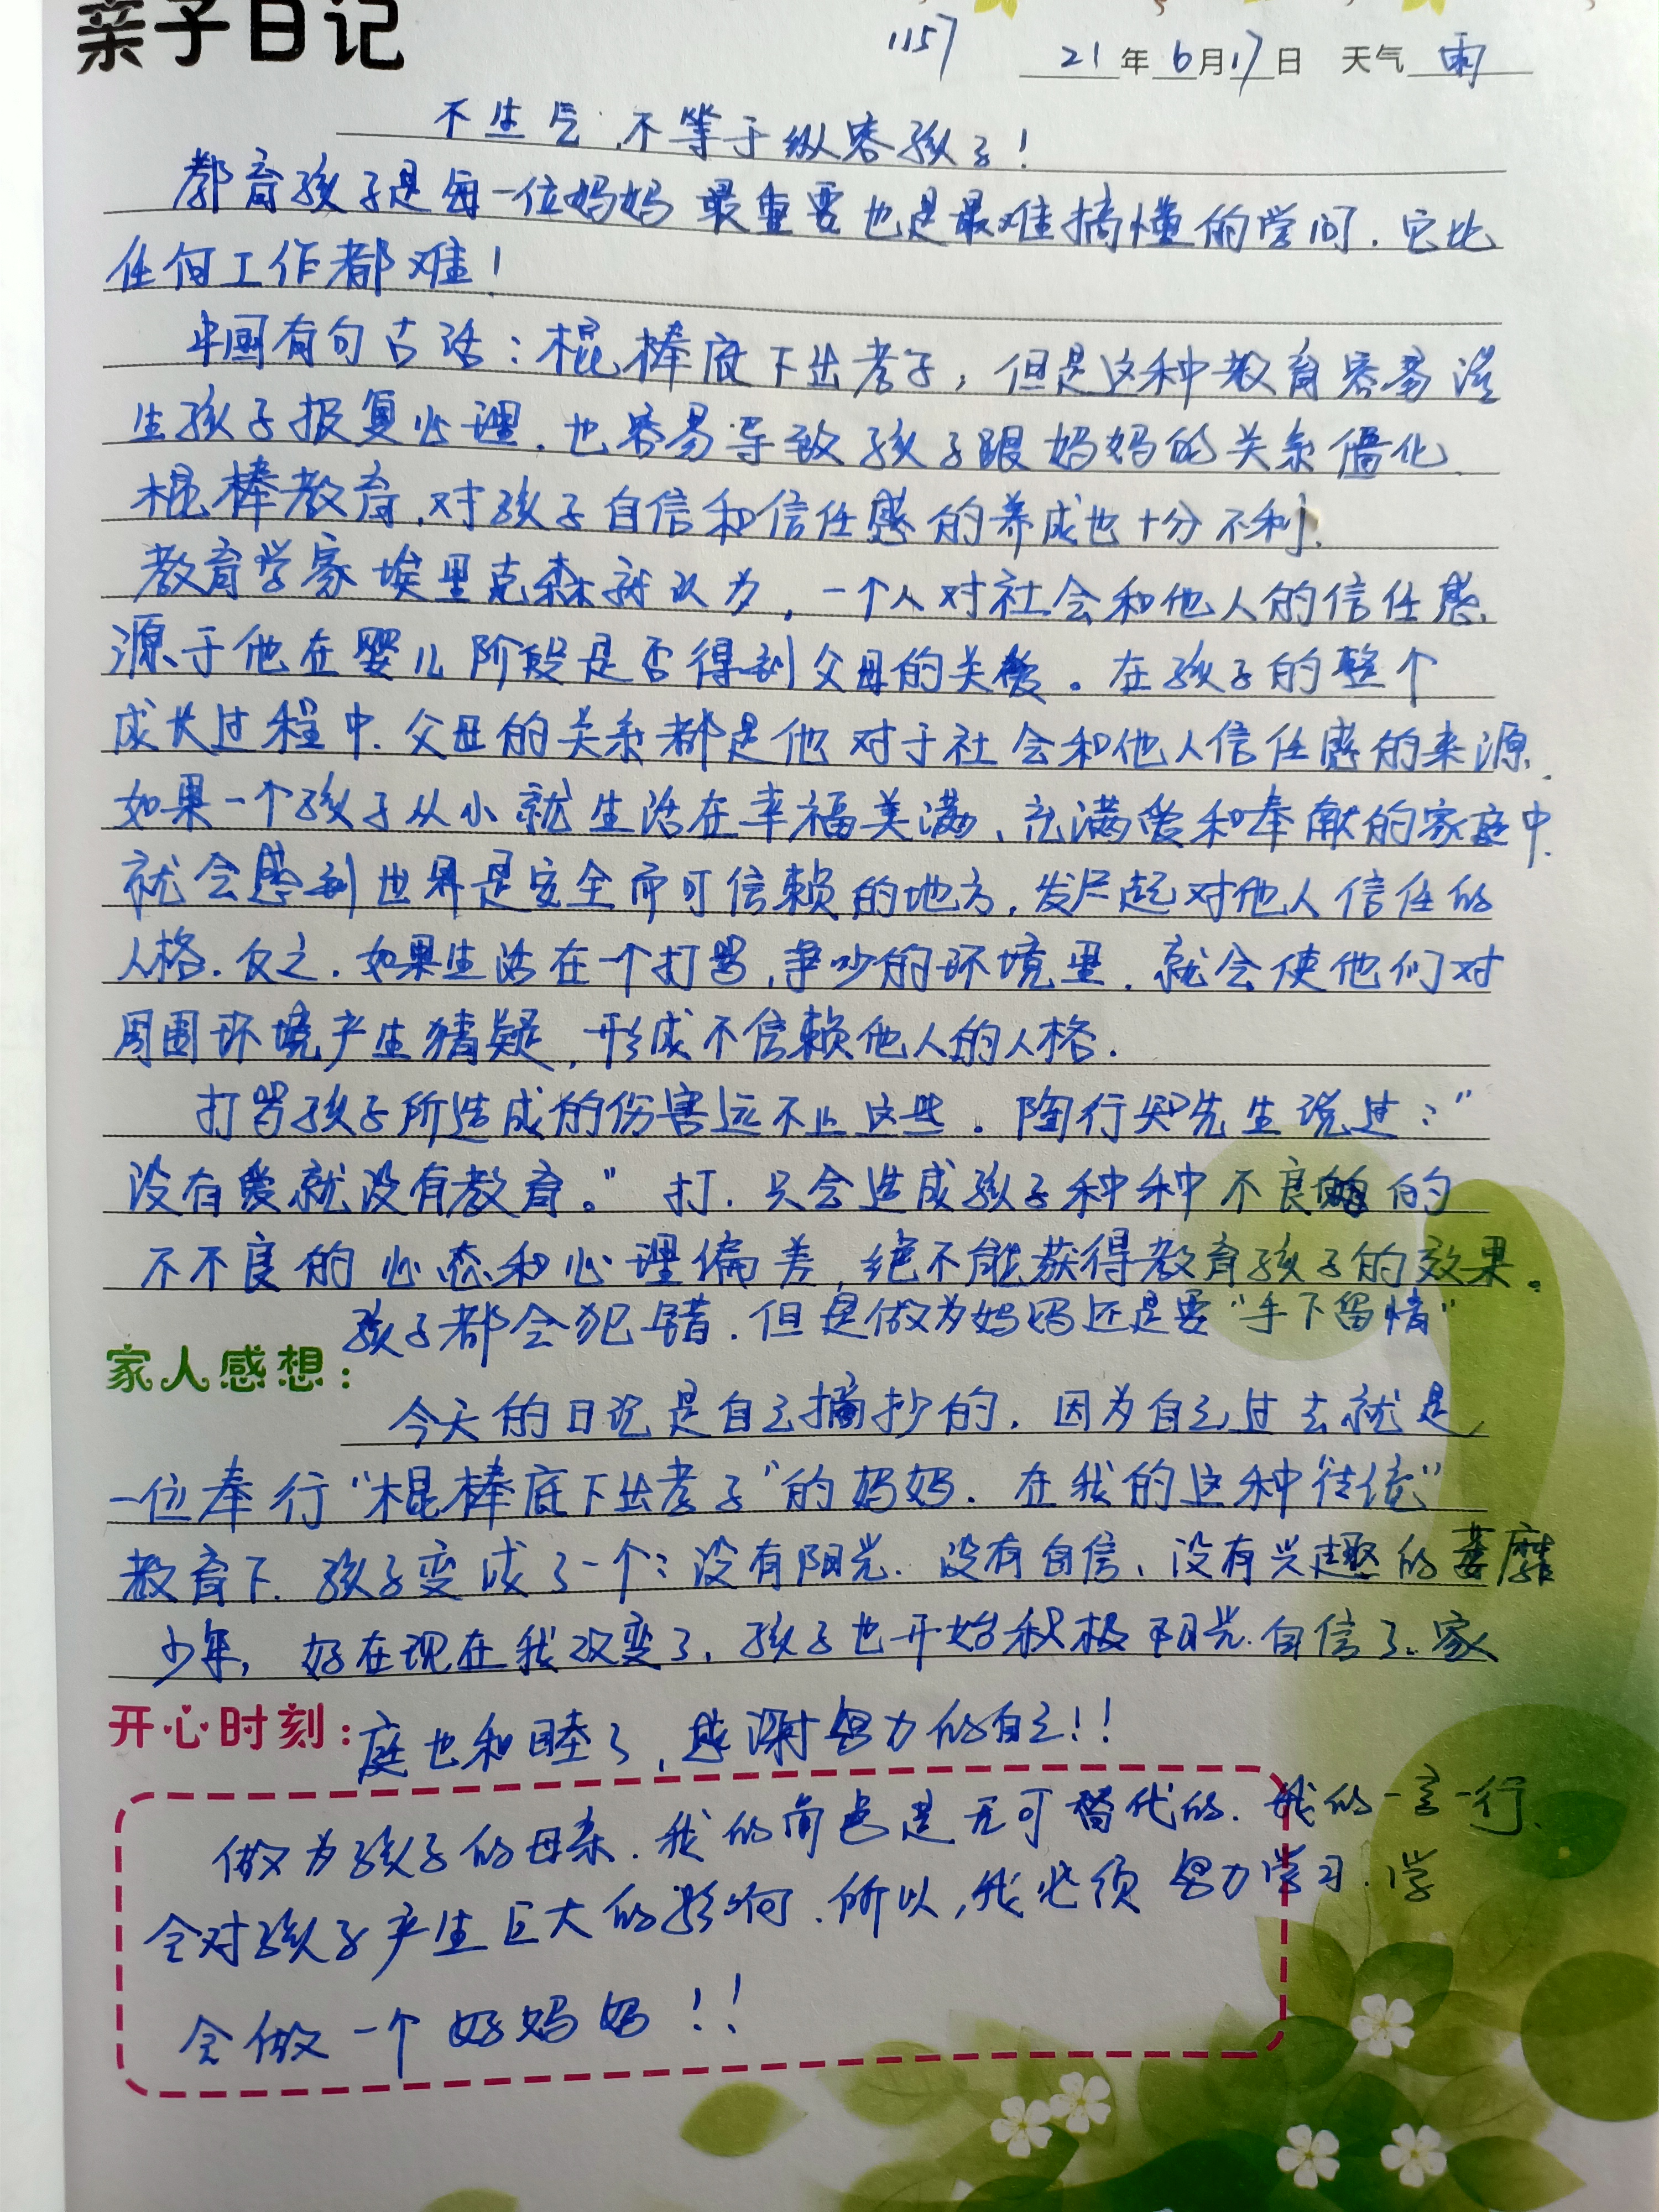 亲子日记
1157 21年6月17日 天气 雨
不生气,不等于纵容孩子!
教育孩子是每一位妈妈最重要也是最难搞懂的学问.它比
任何工作都难!
中国有句古话:棍棒底下出孝子,但是这种教育容易滋
生孩子报复心理.也容易导致孩子跟妈妈的关系僵化.
棍棒教育,对孩子自信和信任感的养成也十分不利.
教育学家埃里克森就认为,一个人对社会和他人的信任感.
源于他在婴儿阶段是否得到父母的关爱。在孩子的整个
成长过程中.父母的关系都是他对于社会和他人信任感的来源.
如果一个孩子从小就生活在幸福美满、充满爱和奉献的家庭中.
就会感到世界是安全而可信赖的地方,发展起对他人信任的
人格.反之.如果生活在一个打骂,争吵的环境里.就会使他们对
周围环境产生猜疑,形成不信赖他人的人格.
打骂孩子所造成的伤害远不止这些。陶行知先生说过:"
没有爱就没有教育。"打.只会造成孩子种种不良的
不不良的心态和心理偏差,绝不能获得教育孩子的效果。
孩子都会犯错.但是做为妈妈还是要"手下留情"
家人感想:
今天的日记是自己摘抄的.因为自己过去就是
一位奉行"棍棒底下出孝子"的妈妈.在我的这种"传统"
教育下.孩子变成了一个:没有阳光.没有自信、没有兴趣的萎靡
少年,好在现在我改变了,孩子也开始积极阳光.自信了.家
开心时刻:庭也和睦了,感谢努力的自己!!
做为孩子的母亲.我的角色是无可替代的.我的一言一行.
会对孩子产生巨大的影响.所以,我必须努力学习.学
会做一个好妈妈!!